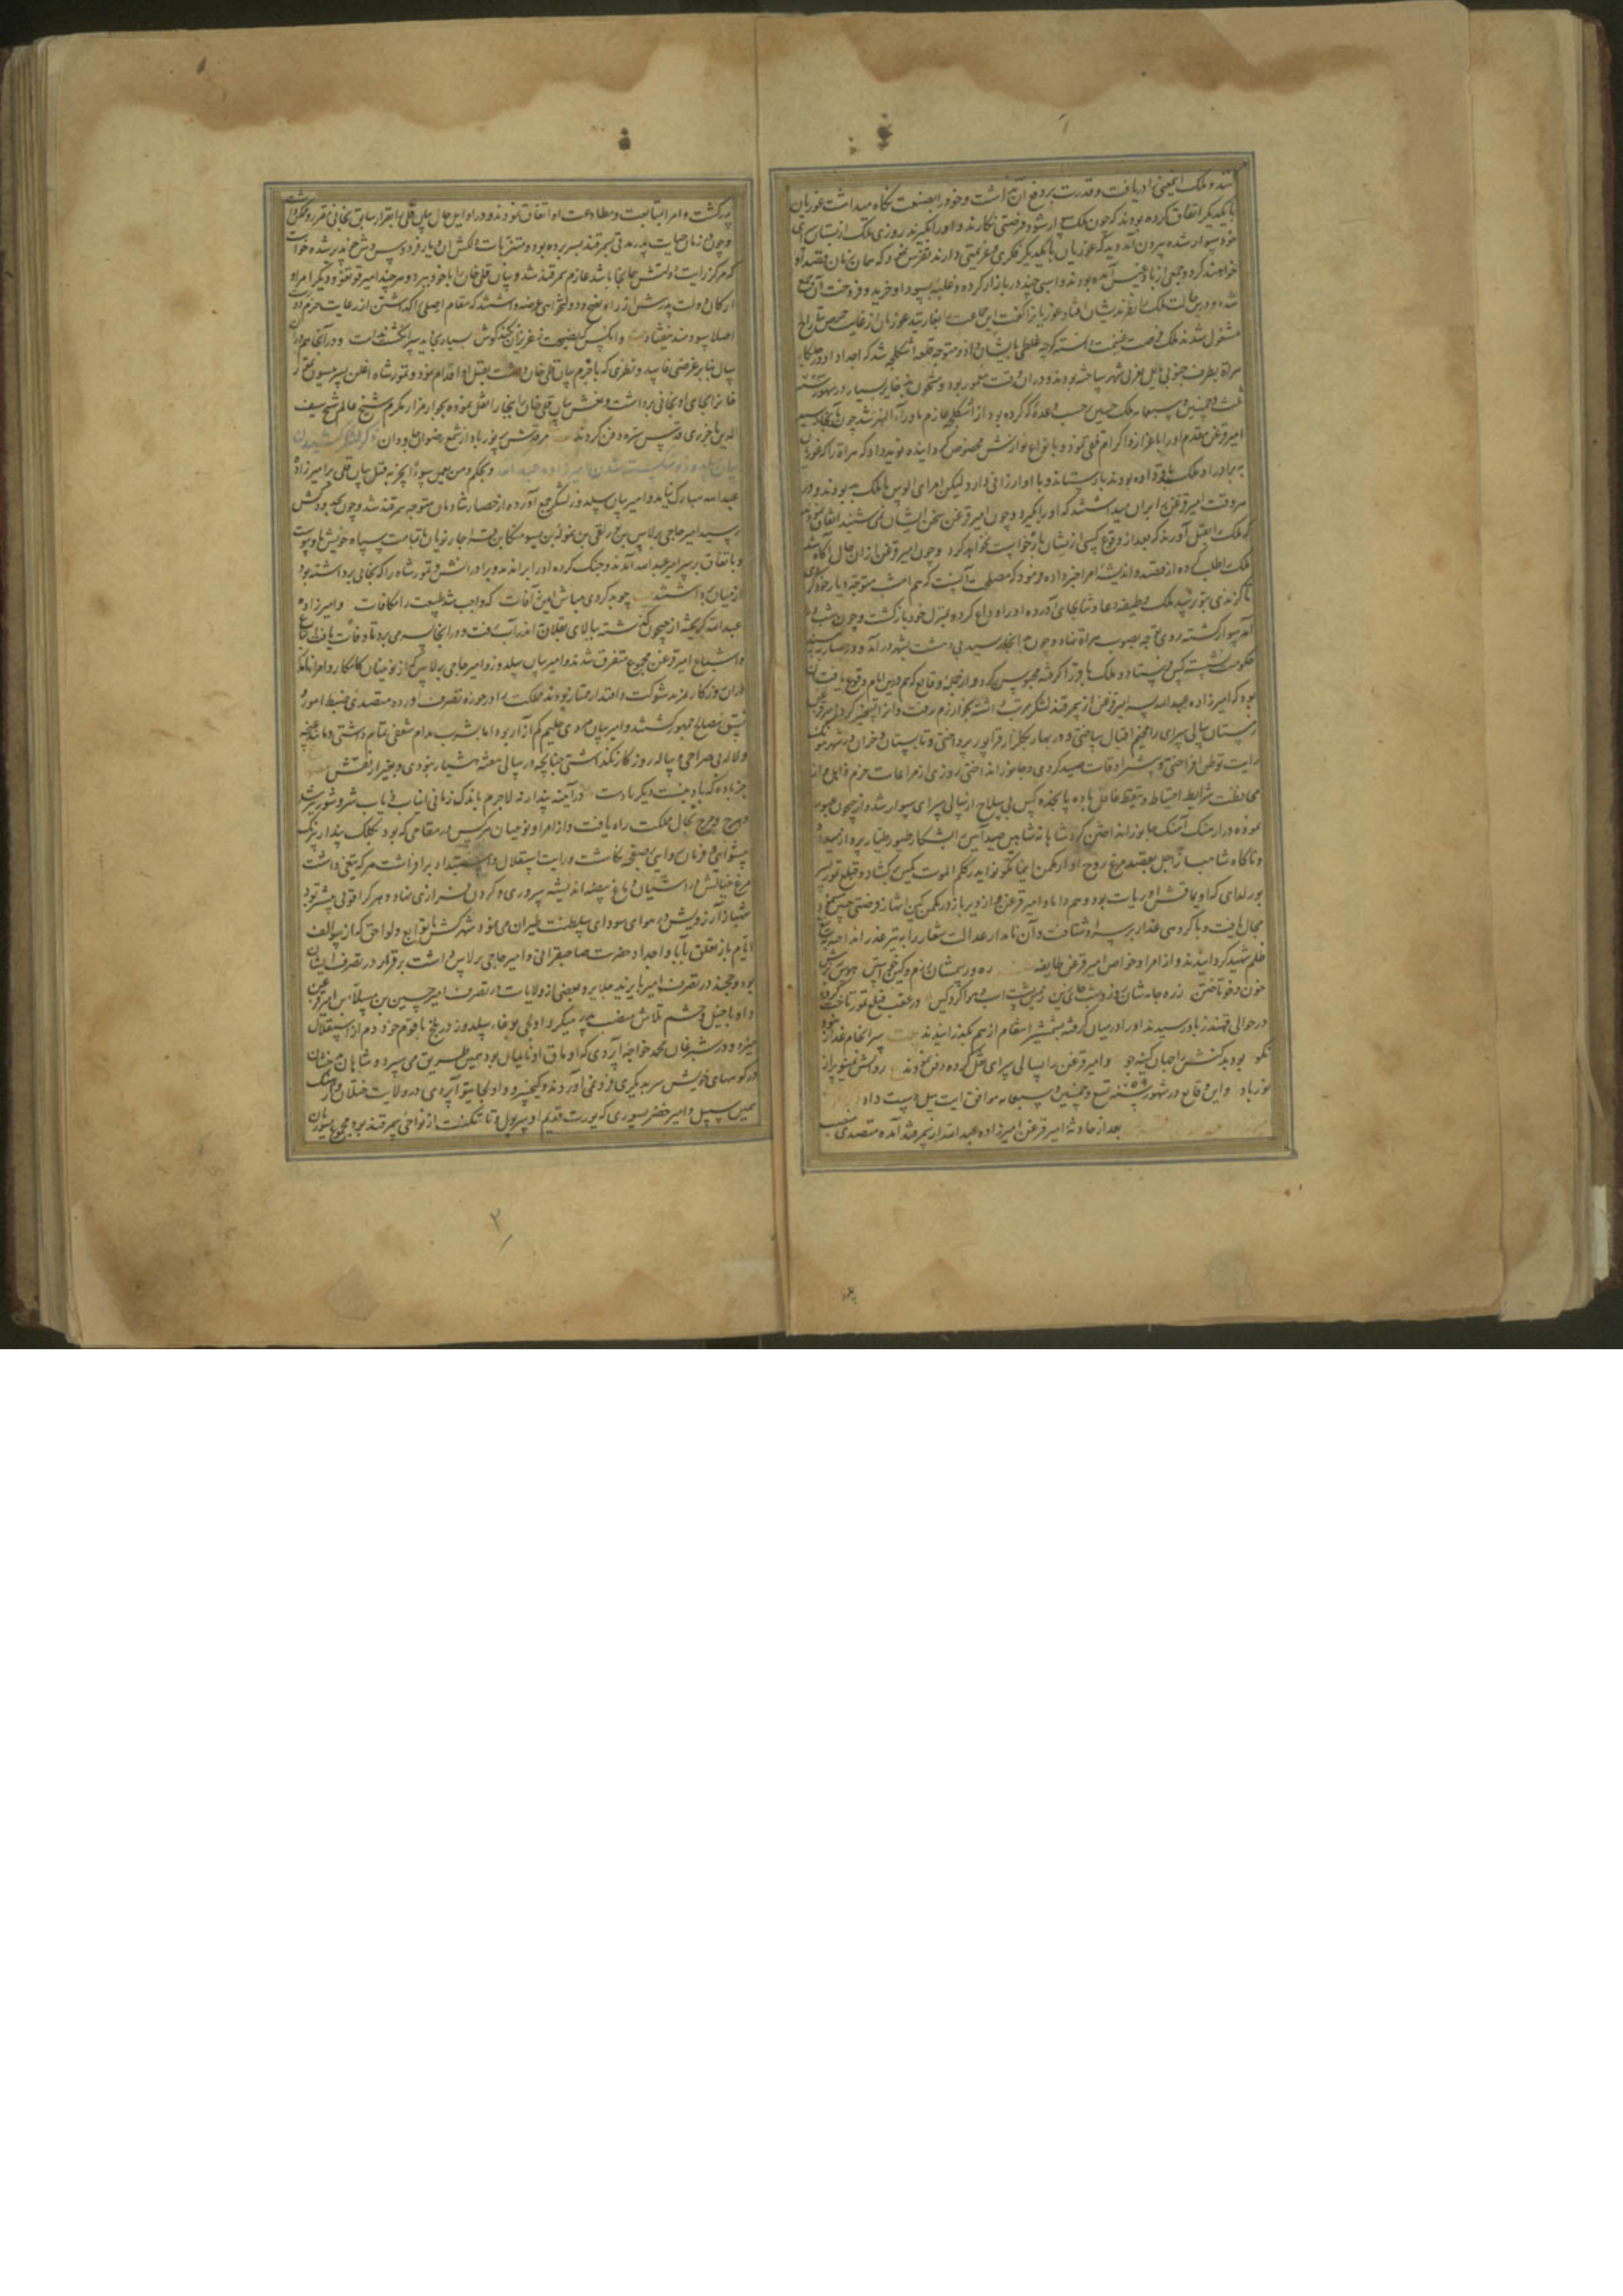 شد و ملک اینمعنی را دریافت و قدرت بر دفع آن نداشت و خود را بصنعت نگاه میداشت غوریان
با یکدیگر اتفاق کرده بودند که چون ملک سوار شود فرصتی نگاه دارند و او را بگیرند روزی ملک از بستان سرای
خود سوار شده بیرون آمد دید که غوریان با یکدیگر فکری و عزیمتی دارند تفرس نمود که همان زمان قصد او
خواهند کرد و جمعی از بادغیس آمده بودند و اسبی چند در بازار کرده و غلبه بسودا و خرید و فروخت آن جمع
شده و درین حالت ملک را نظر بدیشان افتاد غوریانرا گفت این جماعت را بغارتید غوریان از غایت حرص بتاراج
مشغول شدند ملک فرصت غنیمت دانسته کوچه غلطی بایشان داد و متوجه قلعه اشکلجه شد که اجداد او در
هراة بطرف جنوبی مایل بغربی شهر ساخته بودند و در ان وقت معمور بود و مشحون بذخایر بسیار در شهور سنه
ثلث و خمسین و سبعمایه ملک حسین حسب وعده که کرده بود از اشکلجه عازم ماوراء النهر شد چون بآنجا رسید
امیر قزغن مقدم او را باعزاز و اکرام تلقی نمود و بانواع نوازش مخصوص گردانیده نوید داد که هراة را که غوریان
به برادر او ملک باقر داده بودند باز ستاند و با او ارزانی دارد و لیکن امرای الوس با ملک بد بودند و در
هر وقت امیر قزغن را بران میداشتند که او را بگیرد و چون امیر قزغن سخن ایشان نمی شنید اتفاق نمودند
که ملک را بقتل آورند که بعد از وقوع کسی از یشان بازخواست نخواهد کرد و چون امیر قزغن از ان حال آگاه شد
ملک را طلب کرده از قصد و اندیشه امرا خبر داده و فرمود که مصلحت آنست که هم امشب متوجه دیار خود گردی
تا گزندی بتو نرسد ملک وظیفه دعا و ثنا بجای آورده او را وداع کرده بمنزل خود بازگشت و چون شب
آمد سوار گشته روی توجه بصوب هراة نهاد و چون بانجا رسید بی دهشت بشهر درآمد و در حصار بمسند
حکومت نشست کس فرستاد و ملک باقر را گرفته محبوس کرد و از جمله وقایع که هم درین ایام وقوع یافت ان
بود که امیر زاده عبد الله پسر امیر قزغن از سمرقند لشکر مرتب داشته بخوارزم رفت و انرا تسخیر کرد امیر قزغن
زمستان سالی سرای را مخیم اقبال ساختی و در بهار بکلزار قرابور پرداختی و تابستان و خزان در شهر مونک
رایت توطن افراختی و بیشتر اوقات صید کردی و جانور انداختی روزی از مراعات حزم ذاهل و از
محافظت شرایط احتیاط و تیقظ غافل با ده پانجده کس بی سلاح از سالی سرای سوار شد و از جیحون عبور
نموده در ارهنک آهنک جانور انداختن کرد شاهانه شاهین صید آیین را بشکار طیور طیار پرواز میداد
و ناگاه شاهباز اجل بقصد مرغ روح او از مکمن اینما تکونوا یدرککم الموت کمین بگشاد و قتلغ تمور پسر
بورلدای که او یماقش اوریات بود و هم داماد امیر قزغن و از دیر باز در مکمن کین انتهاز فرصتی چنین مینمود
مجال یافت و با گروهی غدار بر سر او شتافت و آن نامدار عدالت شعار را به تیر غدر از انداخته بتیغ
ظلم شهید گردانیدند و از امرا و خواص امیر قزغن طایفه ره و رسمشان رزم و کین خواستی هوس شان
خون و خوتاختن زره جامه شان روز و شب جای زین زمین پشت اسب و هوا گرد کین در عقب قتلغ تمور تاخت کرده
در حوالی قهندز باو رسیدند و او را در میان گرفته بشمشیر انتقام از هم بگذرانیدند بیت سرانجام غدار نبود
نکو بود بد کنش را جهان کینه جو و امیر قزغن را بسالی سرای نقل کرده دفن نمودند روانش ز مینو پر از
نور باد و این وقایع در شهور سنه تسع و خمسین و سبعمایه موافق ایت ییل دست داد
بعد از حادثه امیر قزغن امیر زاده عبد الله از سمرقند آمده متصدی منصب
پدر گشت و امرا بمتابعت و مطاوعت او اتفاق نمودند و در اوایل حال بیان قلی را بقرار سابق بخانی مقرر و مکرم داشت
و چون در زمان حیات پدر مدتی بسمرقند بسر برده بود و متنزهات دلکش ان دیار فردوس وش خو پذیر شده خواست
که مرکز رایت دولتش هم انجا باشد عازم سمرقند شد و بیان قلی خان را با خود ببرد و هر چند امیر قوتغتمور و دیگر امرا و
ارکان دولت پدرش از راه نصح و دولتخواهی عرضه داشتند که مقام اصلی را گذاشتن از رعایت حزم دورست
اصلا سودمند نیفتاد بیت و انکس که نصیحت ز عزیزان نکند گوش بسیار بخاید سر انگشت ندامت و در آنجا هم در ان
سال بنابر غرضی فاسد و نظری که با حرم بیان قلی خان داشت بقتل او اقدام نمود و تمور شاه اغلن پسر یسون تمور
خان را بجای او بخانی برداشت و نعش بیان قلی خان را ببخارا نقل نموده بجوار مزار مکرم شیخ عالم شیخ سیف
الدین باخرزی قدس سره دفن کردند مرقدش پر نور باد از شمع رضوان جاودان ذکر لشکر کشیدن
بیان سلدوز و شکسته شدن امیر زاده عبد الله و بحکم و من یعمل سوءا یجز به قتل بیان قلی بر امیر زاده
عبد الله مبارک نیامد و امیر بیان سلدوز لشکر جمع آورده از حصار شادمان متوجه سمرقند شد و چون بحدود کش
رسید امیر حاجی برلاس بن برلغی بن نموله بن یسو منکا بن قراجار نویان با تمامت سپاه خویش باو پیوست
و باتفاق بر سر امیر عبد الله آمدند و جنگ کرده او را براندند و برادرانش و تمور شاه را که بخانی برداشته بود
از میان برداشتند بیت چو بد کردی مباش ایمن ز آفات که واجب شد طبیعت را مکافات و امیر زاده
عبد الله گریخته از جیحون گذشته ببالای بقلان اندراب رفت و در انجا بسر می برد تا وفات یافت و اتباع
و اشیاع امیر قزغن مجموع متفرق شدند و امیر بیان سلدوز و امیر حاجی برلاس که از نوینان کامکار و امرای نامدار
ان روزگار بمزید شوکت و اقتدار ممتاز بودند مملکت را در حوزه تصرف اورده متصدی ضبط امور و
نسق مصالح جمهور گشتند و امیر بیان مردی حلیم کم آزار بود اما بشرب مدام شعفی تمام داشتی و مانند غنچه
و لاله بی صراحی و پیاله روزگار نگذاشتی چنانچه در سالی هفته هشیار نبودی و بغیر از نقش
جز باده که باد نیست دیگر بادست در آینه پندار نه لاجرم باندک زمانی اسباب فساد و شور و شر بشد
و هرج و مرج بحال مملکت راه یافت و از امرا و نوینان هر کس در مقامی که بود بکلک پندار نیرنگ
پیشوایی و فرمان روایی بر صفحه نگاشت و رایت استقلال و استبداد برافراشت هر که تیغی داشت
مرغ خیالش در آشیان دماغ بیضه اندیشه سروری و گردن فرازی نهاد و هر کرا قوتی بیشتر بود
شهباز آرزویش در هوای سودای سلطنت طیران می نمود شهر کش با توابع و لواحق که از سوالف
ایام باز تعلق بآبا و اجداد حضرت صاحبقرانی و امیر حاجی برلاس داشت برقرار در تصرف ایشان
بود و خجند در تصرف امیر بایزید جلایر و بعضی از ولایات در تصرف امیر حسین بن مسلا بن امیر قزغن
و او با خیل و حشم تلاش منصب پدر میکرد اولجای بوغا سلدوز در بلخ با قوم خود دم از استقلال
میزد و در شبرغان محمد خواجه اپردی که اویماق او نایمان بود همین طریق می سپرد و شاهان بدخشان
در کوههای خویش سر بدیگری فرو نمی آوردند و کیخسرو و اولجایتو آپردی در ولایت ختلان و ارهنگ
همین سبیل و امیر خضر یسوری که یورت قدیم او سرپول و تاتکنت از نواحی سمرقند بود مجموع یسوریان
۲